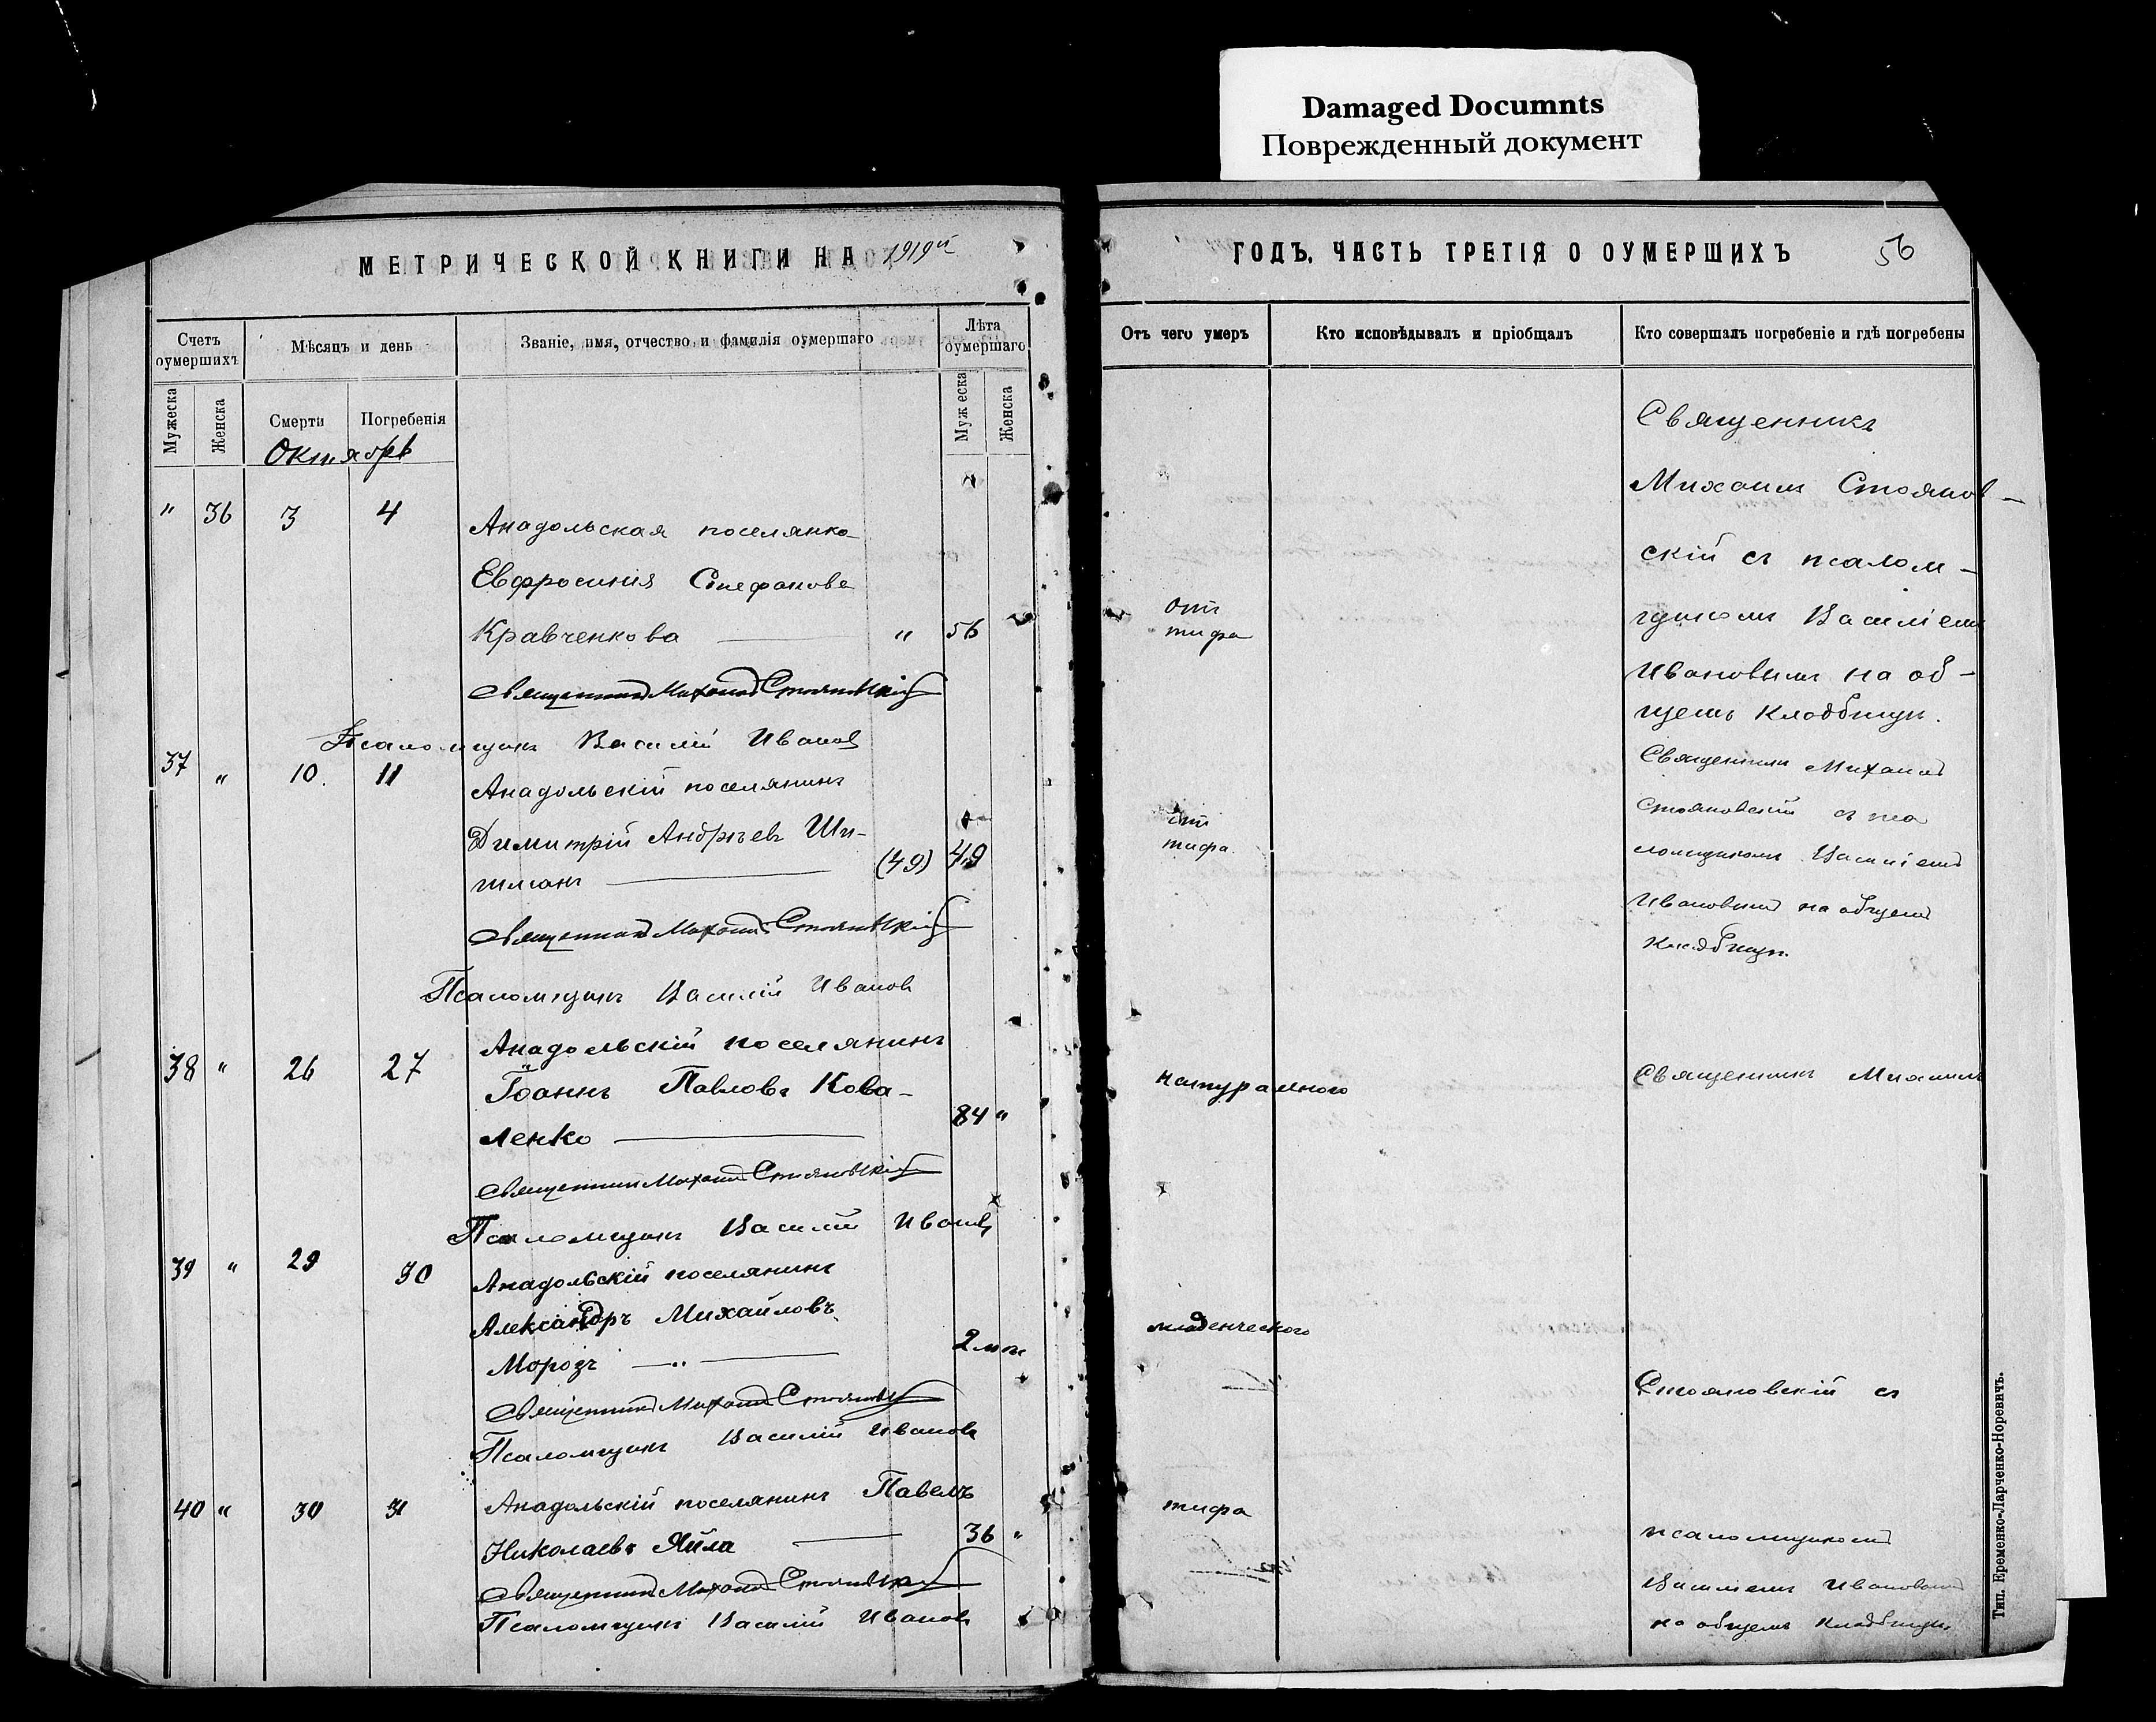 Damaged Documnts
Поврежденный документ
МЕТРИЧЕСКОЙ КНИГИ НА 1919й
Счетъ оумершихъ
Мѣсяцъ и день
Званіе, имя, отчество и фамилія оумершаго
Лѣта оумершаго
Мужеска
Женска
Смерти
Погребенія
Муж еска
Женска
Октябрь
" 36 3 4
Анадольская поселянка
Евфросинія Стефанова
Кравченкова " 56
Священникъ Михаилъ Стояновскій
Псаломщикъ Василій Иванов
37 " 10. 11
Анадольскій поселянинъ
Димитрій Андрѣевъ
(49) 49
Священникъ Михаилъ Стояновскій
Псаломщикъ Василій Иванов
38 " 26 27
Анадольскій поселянинъ
Іоаннъ Павловъ Кова-
ленко 84 "
Священникъ Михаилъ Стояновскій
Псаломщикъ Василій Иванов
39 " 29 30
Анадольскій поселянинъ
Александръ Михайловъ
Морозъ 2 мѣс
Священникъ Михаилъ Стояновскій
Псаломщикъ Василій Иванов
40 " 30 31
Анадольскій поселянинъ Павелъ
Николаевъ Яйла 36 "
Священникъ Михаилъ Стояновскій
Псаломщикъ Василій Иванов
ГОДЪ, ЧАСТЬ ТРЕТІЯ О ОУМЕРШИХЪ
56
Отъ чего умеръ
Кто исповѣдывалъ и пріобщалъ
Кто совершалъ погребеніе и гдѣ погребены
Священникъ
Михаилъ Стоянов-
скій съ псалом-
щикомъ Василіемъ
Ивановымъ на об-
щемъ кладбищѣ.
отъ
тифа
Священникъ Михаилъ
Стояновскій съ пса
ломщикомъ Василіемъ
Ивановымъ на общемъ
кладбищѣ.
отъ
тифа
натуральнаго
Священникъ Михаилъ
младенческаго
Стояновскій съ
тифа
псаломщикомъ
Василіемъ Ивановымъ
на общемъ кладбищѣ
Тип. Еременко-Ларченко-Норевичъ.